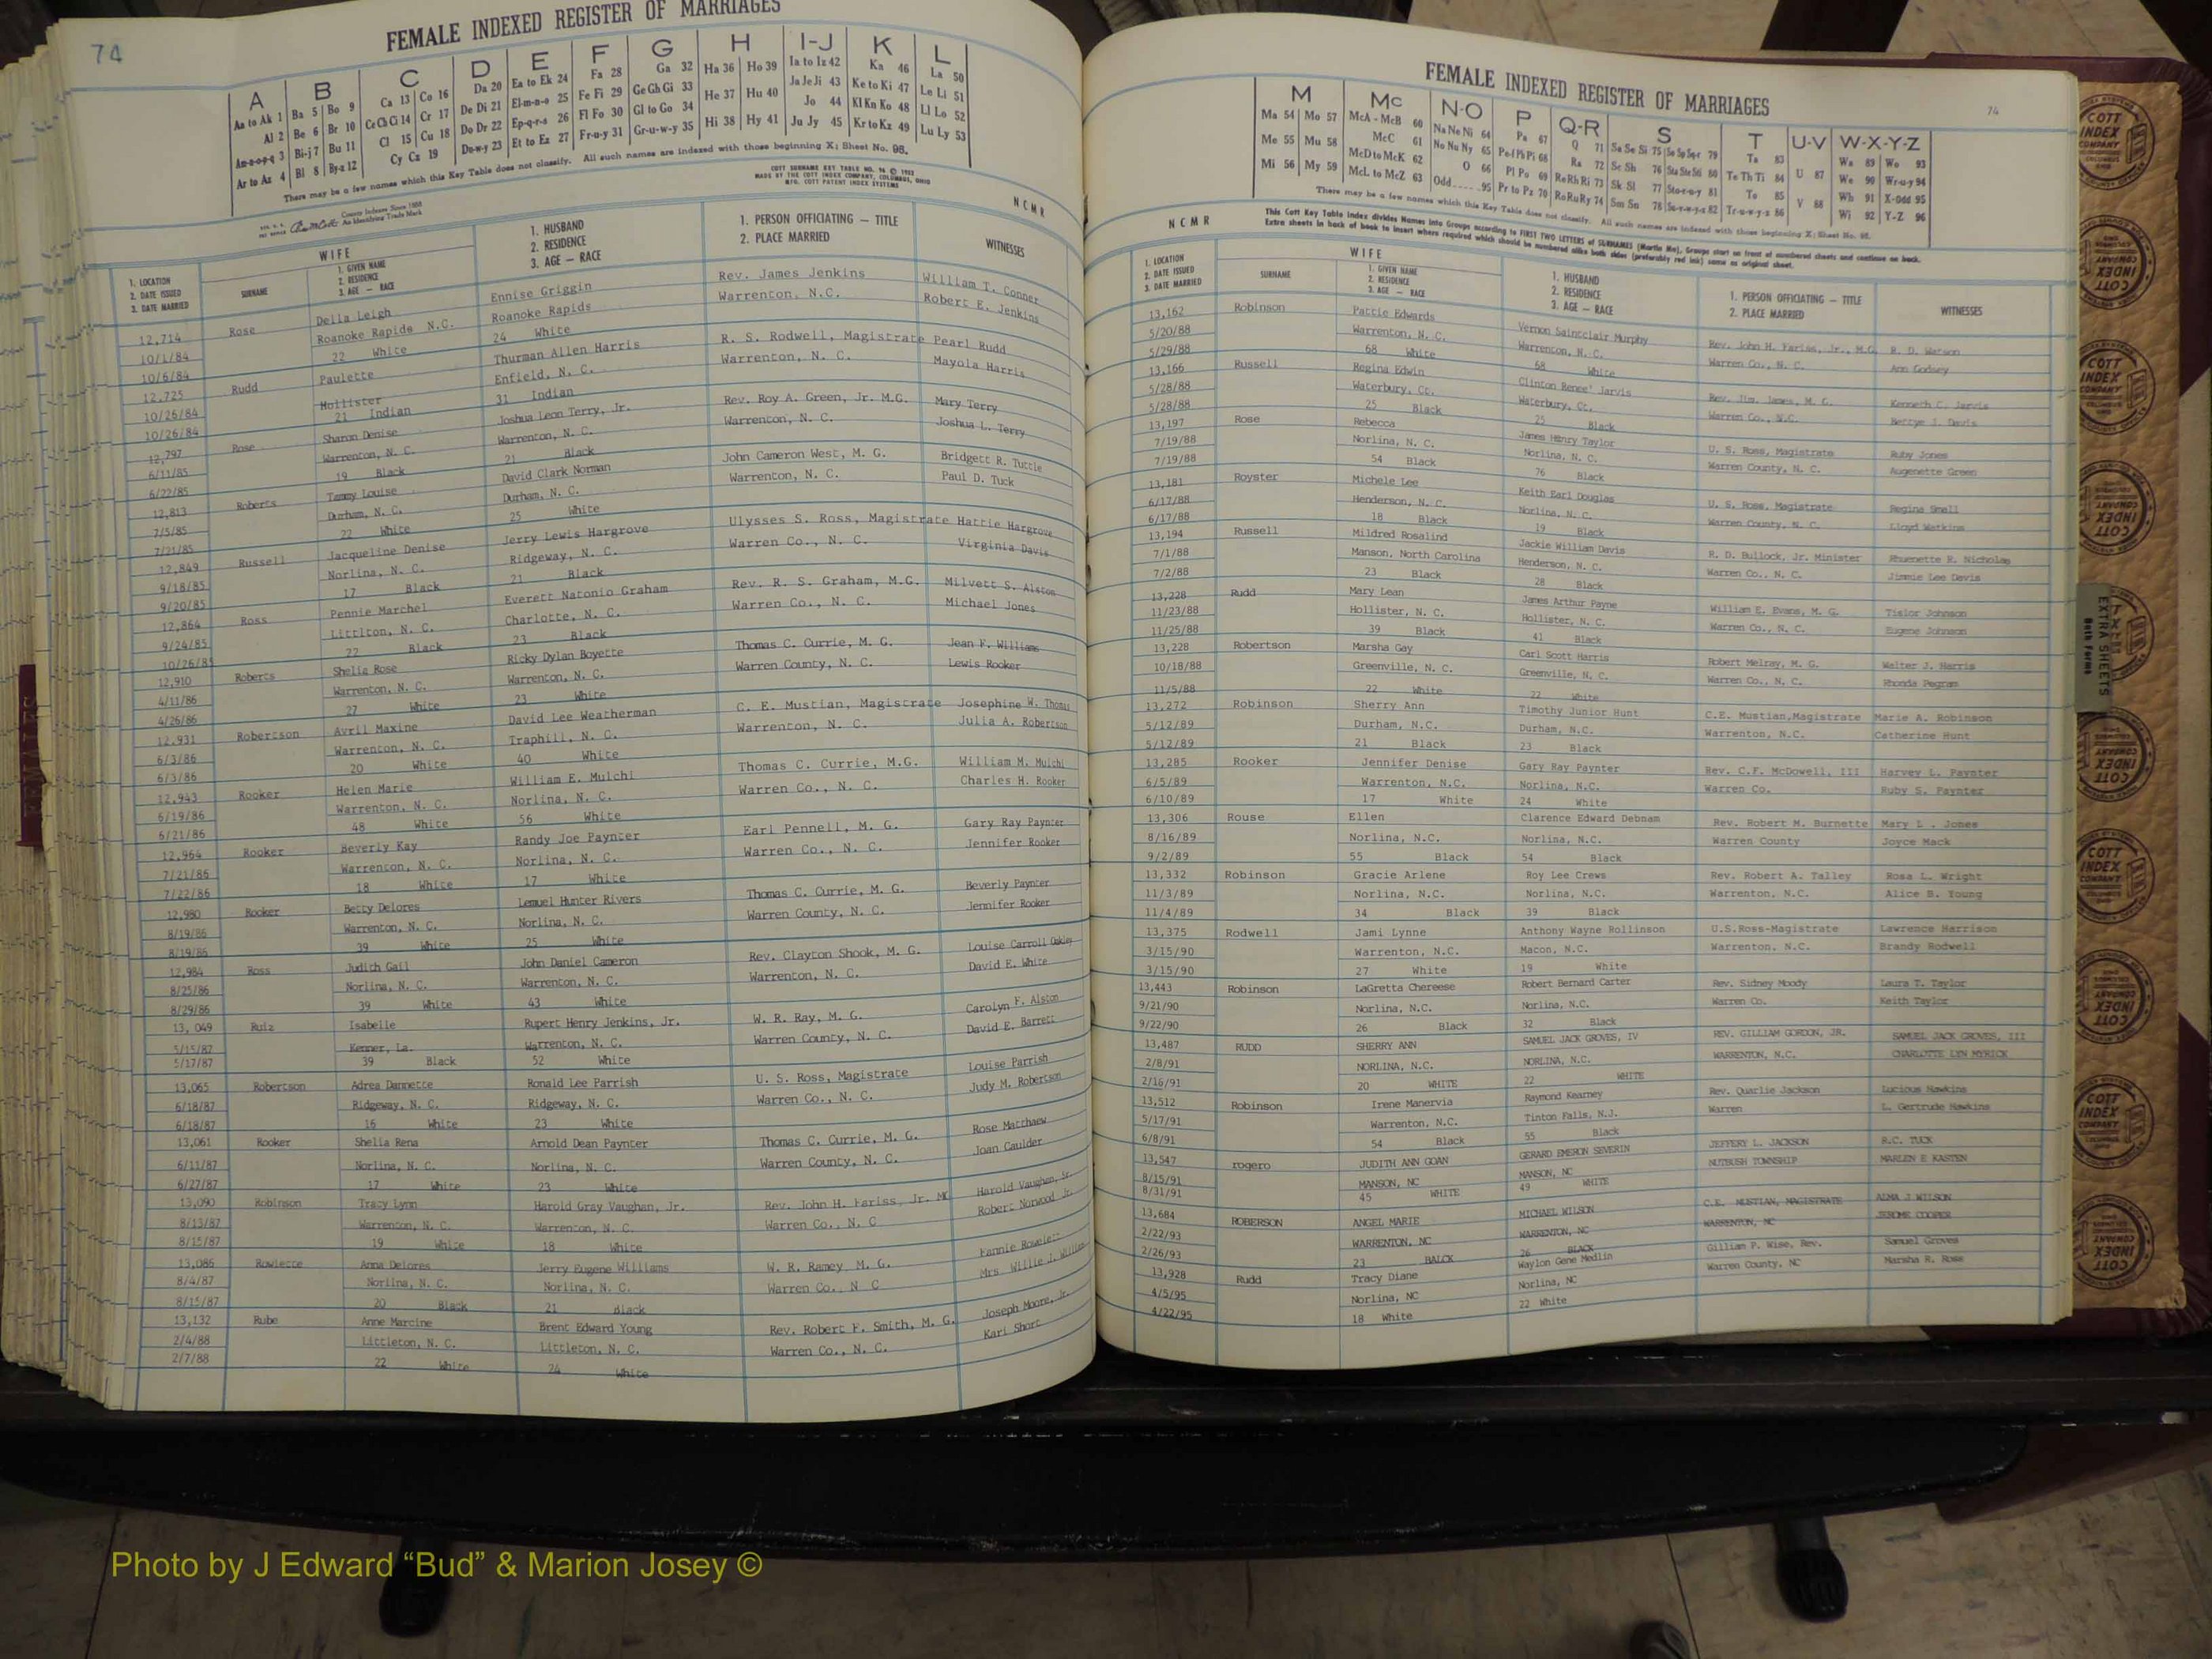 74
FEMALE INDEXED REGISTER OF MARRIAGES
A B C D E F G H I-J K L
Aa to Ak 1 Ba 5 Bo 9 Ca 13 Co 16 Da 20 Ea to Ek 24 Fa 28 Ga 32 Ha 36 Ho 39 Ia to Iz 42 Ka 46 La 50
Al 2 Be 6 Br 10 Ce Ch Ci 14 Cr 17 De Di 21 El-m-n-o 25 Fe Fi 29 Ge Gh Gi 33 He 37 Hu 40 Ja Je Ji 43 Ke to Ki 47 Le Li 51
An-n-o-p-q 3 Bi-j 7 Bu 11 Cl 15 Cu 18 Do Dr 22 Ep-q-r-s 26 Fl Fo 30 Gl to Go 34 Hi 38 Hy 41 Jo 44 Kl Kn Ko 48 Ll Lo 52
Ar to Az 4 Bl 8 By-z 12 Cy Cz 19 Du-w-y 23 Et to Ez 27 Fr-u-y 31 Gr-u-w-y 35 Ju Jy 45 Kr to Kz 49 Lu Ly 53
There may be a few names which this Key Table does not classify. All such names are indexed with those beginning X; Sheet No. 98.
County Indexes Since 1888
An Identifying Trade Mark
COTT SURNAME KEY TABLE NO.
MADE BY THE COTT INDEX COMPANY, COLUMBUS, OHIO
MFG. COTT PATENT INDEX SYSTEMS
NCMR
1. LOCATION
2. DATE ISSUED
3. DATE MARRIED
WIFE
SURNAME
1. GIVEN NAME
2. RESIDENCE
3. AGE — RACE
1. HUSBAND
2. RESIDENCE
3. AGE — RACE
1. PERSON OFFICIATING — TITLE
2. PLACE MARRIED
WITNESSES
12,714 Rose Della Leigh Ennise Griggin Rev. James Jenkins William T. Conner
10/1/84 Roanoke Rapids N.C. Roanoke Rapids Warrenton, N.C. Robert E. Jenkins
10/6/84 22 White 24 White
12,725 Rudd Paulette Thurman Allen Harris R. S. Rodwell, Magistrate Pearl Rudd
10/26/84 Hollister Enfield, N. C. Warrenton, N. C. Mayola Harris
10/26/84 21 Indian 31 Indian
12,797 Rose Sharon Denise Joshua Leon Terry, Jr. Rev. Roy A. Green, Jr. M.G. Mary Terry
6/11/85 Warrenton, N. C. Warrenton, N. C. Warrenton, N. C. Joshua L. Terry
6/22/85 19 Black 21 Black
12,813 Roberts Tammy Louise David Clark Norman John Cameron West, M. G. Bridgett R. Tuttle
7/5/85 Durham, N. C. Durham, N. C. Warrenton, N. C. Paul D. Tuck
7/21/85 22 White 25 White
12,849 Russell Jacqueline Denise Jerry Lewis Hargrove Ulysses S. Ross, Magistrate Hattie Hargrove
9/18/85 Norlina, N. C. Ridgeway, N. C. Warren Co., N. C. Virginia Davis
9/20/85 17 Black 21 Black
12,864 Ross Pennie Marchel Everett Natonio Graham Rev. R. S. Graham, M.G. Milvett S. Alston
9/24/85 Littlton, N. C. Charlotte, N. C. Warren Co., N. C. Michael Jones
10/26/85 22 Black 23 Black
12,910 Roberts Shelia Rose Ricky Dylan Boyette Thomas C. Currie, M. G. Jean F. Williams
4/11/86 Warrenton, N. C. Warrenton, N. C. Warren County, N. C. Lewis Rooker
4/26/86 27 White 23 White
12,931 Robertson Avril Maxine David Lee Weatherman C. E. Mustian, Magistrate Josephine W. Thomas
6/3/86 Warrenton, N. C. Traphill, N. C. Warrenton, N. C. Julia A. Robertson
6/3/86 20 White 40 White
12,943 Rooker Helen Marie William E. Mulchi Thomas C. Currie, M.G. William M. Mulchi
6/19/86 Warrenton, N. C. Norlina, N. C. Warren Co., N. C. Charles H. Rooker
6/21/86 48 White 56 White
12,964 Rooker Beverly Kay Randy Joe Paynter Earl Pennell, M. G. Gary Ray Paynter
7/21/86 Warrenton, N. C. Norlina, N. C. Warren Co., N. C. Jennifer Rooker
7/22/86 18 White 17 White
12,980 Rooker Betty Delores Lemuel Hunter Rivers Thomas C. Currie, M. G. Beverly Paynter
8/19/86 Warrenton, N. C. Norlina, N. C. Warren County, N. C. Jennifer Rooker
8/19/86 39 White 25 White
12,984 Ross Judith Gail John Daniel Cameron Rev. Clayton Shook, M. G. Louise Carroll Oakley
8/25/86 Norlina, N. C. Warrenton, N. C. Warrenton, N. C. David E. White
8/29/86 39 White 43 White
13, 049 Ruiz Isabelle Rupert Henry Jenkins, Jr. W. R. Ray, M. G. Carolyn F. Alston
5/15/87 Kenner, La. Warrenton, N. C. Warren County, N. C. David E. Barrett
5/17/87 39 Black 52 White
13,065 Robertson Adrea Dannette Ronald Lee Parrish U. S. Ross, Magistrate Louise Parrish
6/18/87 Ridgeway, N. C. Ridgeway, N. C. Warren Co., N. C. Judy M. Robertson
6/18/87 16 White 23 White
13,061 Rooker Shelia Rena Arnold Dean Paynter Thomas C. Currie, M. G. Rose Matthaew
6/11/87 Norlina, N. C. Norlina, N. C. Warren County, N. C. Joan Gaulder
6/27/87 17 White 23 White
13,090 Robinson Tracy Lynn Harold Gray Vaughan, Jr. Rev. John H. Fariss, Jr. MG Harold Vaughan, Sr.
8/13/87 Warrenton, N. C. Warrenton, N. C. Warren Co., N. C Robert Norwood Jr.
8/15/87 19 White 18 White
13,086 Rowlette Anna Delores Jerry Eugene Williams W. R. Ramey, M. G. Fannie Rowlett
8/4/87 Norlina, N. C. Norlina, N. C. Warren Co., N. C Mrs. Willie J.
8/15/87 20 Black 21 Black
13,132 Rube Anne Marcine Brent Edward Young Rev. Robert F. Smith, M. G. Joseph Moore, Jr.
2/4/88 Littleton, N. C. Littleton, N. C. Warren Co., N. C. Kari Short
2/7/88 22 White 24 White
FEMALE INDEXED REGISTER OF MARRIAGES
74
M Mc N-O P Q-R S T U-V W-X-Y-Z
Ma 54 Mo 57 McA - McB 60 Na Ne Ni 64 Pa 67 Q 71 Sa Se Si 75 79 Ta 83 Wa 89 Wo 93
Me 55 Mu 58 McC 61 No Nu Ny 65 Pe-f Ph Pi 68 Ra 72 Sc Sh 76 Sta Ste Sti 80 Te Th Ti 84 U 87 We 90 Wr-u-y 94
Mi 56 My 59 McD to McK 62 O 66 Pl Po 69 Re Rh Ri 73 Sk Sl 77 Sto-r-u-y 81 To 85 Wh 91 X-Odd 95
McL to McZ 63 Odd 95 Pr to Pz 70 Ro Ru Ry 74 Sm Sn 78 82 Tr-u-w-y-z 86 V 88 Wi 92 Y-Z 96
There may be a few names which this Key Table does not classify. All such names are indexed with those beginning X; Sheet No. 98.
NCMR
This Cott Key Table Index divides Names into Groups according to FIRST TWO LETTERS of SURNAMES (Martin Ma), Groups start on front of numbered sheets and continue on back.
Extra sheets in back of book to insert where required which should be numbered alike both sides (preferably red ink) same as original sheet.
1. LOCATION
2. DATE ISSUED
3. DATE MARRIED
WIFE
SURNAME
1. GIVEN NAME
2. RESIDENCE
3. AGE — RACE
1. HUSBAND
2. RESIDENCE
3. AGE — RACE
1. PERSON OFFICIATING — TITLE
2. PLACE MARRIED
WITNESSES
13,162 Robinson Pattie Edwards Vernon Saintclair Murphy Rev. John H. Fariss, Jr., M.G. R. D. Watson
5/20/88 Warrenton, N. C. Warrenton, N. C. Warren Co., N. C. Ann Godsey
5/29/88 68 White 68 White
13,166 Russell Regina Edwin Clinton Renee' Jarvis Rev. Jim. James, M. G. Kenneth C. Jarvis
5/28/88 Waterbury, Ct. Waterbury, Ct. Warren Co., N.C. Bettye J. Davis
5/28/88 25 Black 25 Black
13,197 Rose Rebecca James Henry Taylor U. S. Ross, Magistrate Ruby Jones
7/19/88 Norlina, N. C. Norlina, N. C. Warren County, N. C. Augenette Green
7/19/88 54 Black 76 Black
13,181 Royster Michele Lee Keith Earl Douglas U. S. Ross, Magistrate Regina Small
6/17/88 Henderson, N. C. Norlina, N. C. Warren County, N. C. Lloyd Watkins
6/17/88 18 Black 19 Black
13,194 Russell Mildred Rosalind Jackie William Davis R. D. Bullock, Jr. Minister Rhuenette R. Nicholas
7/1/88 Manson, North Carolina Henderson, N. C. Warren Co., N. C. Jimmie Lee Davis
7/2/88 23 Black 28 Black
13,228 Rudd Mary Lean James Arthur Payne William E. Evans, M. G. Johnson
11/23/88 Hollister, N. C. Hollister, N. C. Warren Co., N. C. Eugene Johnson
11/25/88 39 Black 41 Black
13,228 Robertson Marsha Gay Carl Scott Harris Robert Melray, M. G. Walter J. Harris
10/18/88 Greenville, N. C. Greenville, N. C. Warren Co., N. C. Rhonda Pegram
11/5/88 22 White 22 White
13,272 Robinson Sherry Ann Timothy Junior Hunt C.E. Mustian,Magistrate Marie A. Robinson
5/12/89 Durham, N.C. Durham, N.C. Warrenton, N.C. Catherine Hunt
5/12/89 21 Black 23 Black
13,285 Rooker Jennifer Denise Gary Ray Paynter Rev. C.F. McDowell, III Harvey L. Paynter
6/5/89 Warrenton, N.C. Norlina, N.C. Warren Co. Ruby S. Paynter
6/10/89 17 White 24 White
13,306 Rouse Ellen Clarence Edward Debnam Rev. Robert M. Burnette Mary L . Jones
8/16/89 Norlina, N.C. Norlina, N.C. Warren County Joyce Mack
9/2/89 55 Black 54 Black
13,332 Robinson Gracie Arlene Roy Lee Crews Rev. Robert A. Talley Rosa L. Wright
11/3/89 Norlina, N.C. Norlina, N.C. Warrenton, N.C. Alice B. Young
11/4/89 34 Black 39 Black
13,375 Rodwell Jami Lynne Anthony Wayne Rollinson U.S.Ross-Magistrate Lawrence Harrison
3/15/90 Warrenton, N.C. Macon, N.C. Warrenton, N.C. Brandy Rodwell
3/15/90 27 White 19 White
13,443 Robinson LaGretta Chereese Robert Bernard Carter Rev. Sidney Moody Laura T. Taylor
9/21/90 Norlina, N.C. Norlina, N.C. Warren Co. Keith Taylor
9/22/90 26 Black 32 Black
13,487 RUDD SHERRY ANN SAMUEL JACK GROVES, IV REV. GILLIAM GORDON, JR. SAMUEL JACK GROVES, III
2/8/91 NORLINA, N.C. NORLINA, N.C. WARRENTON, N.C. CHARLOTTE LYN MYRICK
2/16/91 20 WHITE 22 WHITE
13,512 Robinson Irene Manervia Raymond Kearney Rev. Quarlie Jackson Lucious Hawkins
5/17/91 Warrenton, N.C. Tinton Falls, N.J. Warren L. Gertrude Hawkins
6/8/91 54 Black 55 Black
13,547 rogero JUDITH ANN GOAN GERARD EMERON SEVERIN JEFFERY L. JACKSON R.C. TUCK
8/15/91 MANSON, NC MANSON, NC NUTBUSH TOWNSHIP MARLEN E KASTEN
8/31/91 45 WHITE 49 WHITE
13,684 ROBERSON ANGEL MARIE MICHAEL WILSON C.E. MUSTIAN, MAGISTRATE ALMA J WILSON
2/22/93 WARRENTON, NC WARRENTON, NC WARRENTON, NC JEROME COOPER
2/26/93 23 BALCK 26 BLACK
13,928 Rudd Tracy Diane Waylon Gene Medlin Gillian P. Wise, Rev. Samuel Groves
4/5/95 Norlina, NC Norlina, NC Warren County, NC Marsha R. Ross
4/22/95 18 White 22 White
EXTRA SHEETS
Both Forms
COTT INDEX COMPANY
Photo by J Edward “Bud” & Marion Josey ©